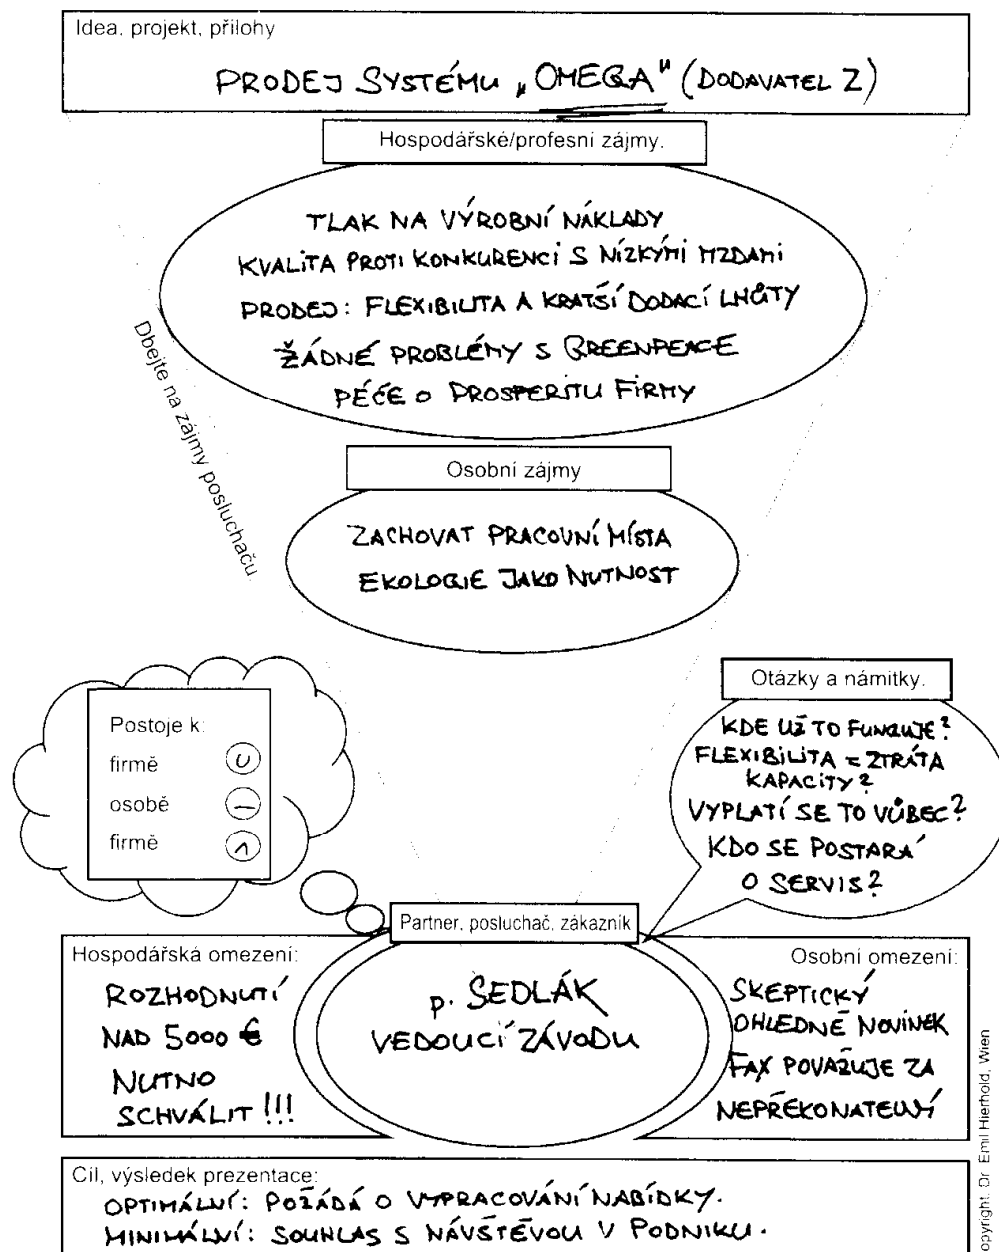 Idea, projekt, přílohy
PRODEJ SYSTÉMU „OMEGA" (DODAVATEL Z)
Hospodářské/profesní zájmy.
TLAK NA VÝROBNÍ NÁKLADY
KVALITA PROTI KONKURENCI S NÍZKÝMI MZDAMI
PRODEJ: FLEXIBILITA A KRATŠÍ DODACÍ LHŮTY
ŽÁDNÉ PROBLÉMY S GREENPEACE
PÉČE O PROSPERITU FIRMY
Dbejte na zájmy posluchačů.
Osobní zájmy
ZACHOVAT PRACOVNÍ MÍSTA
EKOLOGIE JAKO NUTNOST
Postoje k:
firmě
osobě
firmě
Otázky a námitky.
KDE UŽ TO FUNGUJE?
FLEXIBILITA = ZTRÁTA
KAPACITY?
VYPLATÍ SE TO VŮBEC?
KDO SE POSTARÁ
O SERVIS?
Partner, posluchač, zákazník
p. SEDLÁK
VEDOUCÍ ZÁVODU
Hospodářská omezení:
ROZHODNUTÍ
NAD 5000 €
NUTNO
SCHVÁLIT!!!
Osobní omezení:
SKEPTICKÝ
OHLEDNĚ NOVINEK
FAX POVAŽUJE ZA
NEPŘEKONATELNÝ
Cíl, výsledek prezentace:
OPTIMÁLNÍ: POŽÁDÁ O VYPRACOVÁNÍ NABÍDKY.
MINIMÁLNÍ: SOUHLAS S NÁVŠTĚVOU V PODNIKU.
opyright. Dr Emil Hierhold, Wien